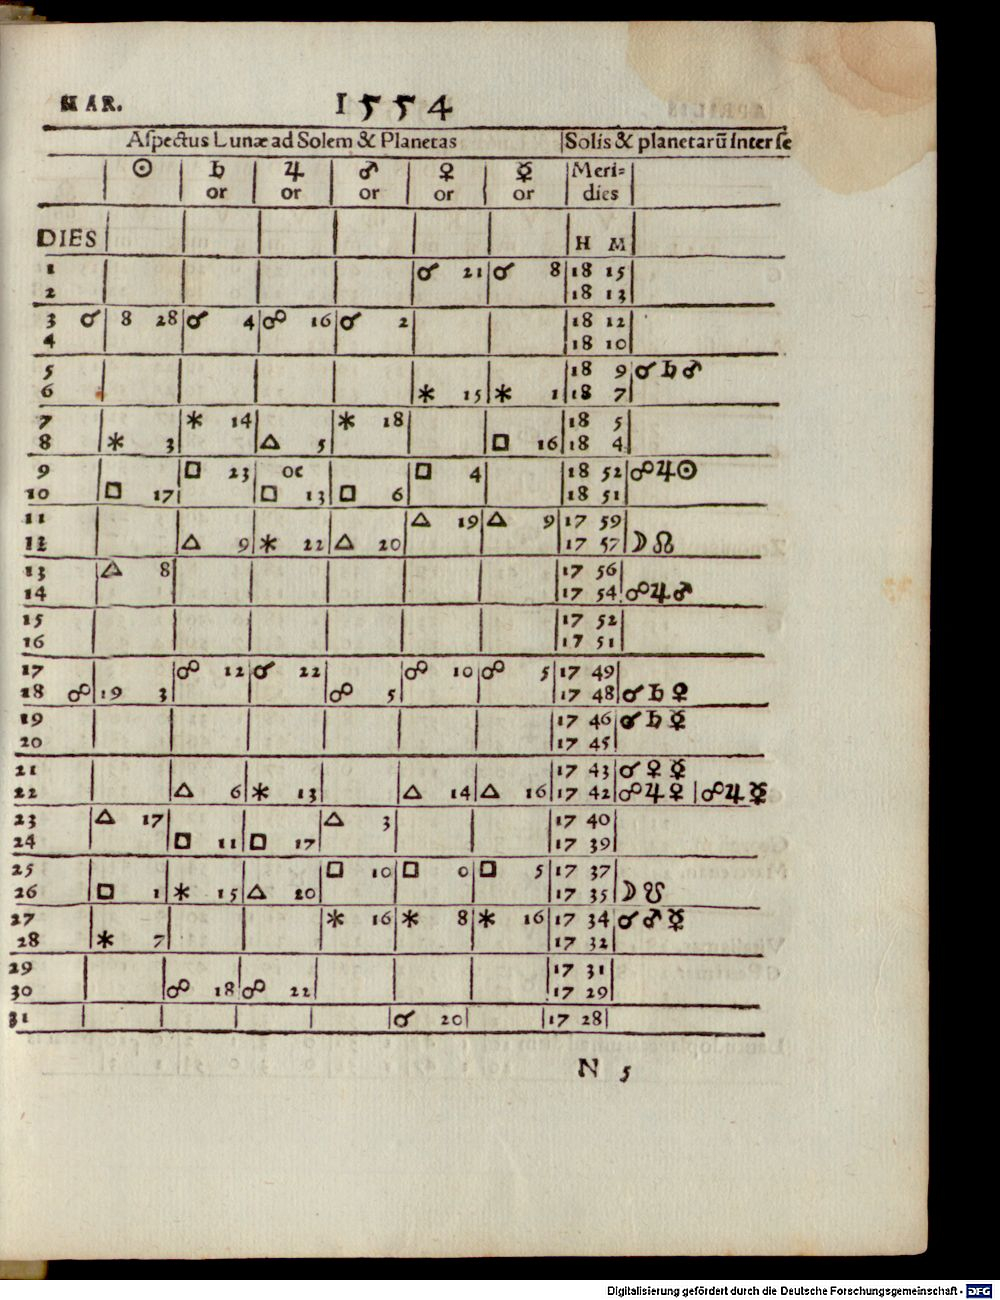 MAR. 1554
Aſpectus Lunæ ad Solem & Planetas Solis & planetarũ inter ſe
☉ ♄ ♃ ♂ ♀ ☿ Meri=
or or or or or dies
DIES H M
1 ☌ 21 ☌ 8 18 15
2 18 13
3 ☌ 8 28 ☌ 4 ☍ 16 ☌ 2 18 12
4 18 10
5 18 9 ☌ ♄ ♂
6 ⚹ 15 ⚹ 1 18 7
7 ⚹ 14 ⚹ 18 18 5
8 ⚹ 3 △ 5 □ 16 18 4
9 □ 23 oc □ 4 18 52 ☍ ♃ ☉
10 □ 17 □ 13 □ 6 18 51
11 △ 19 △ 9 17 59
12 △ 9 ⚹ 22 △ 20 17 57 ☽ ☊
13 △ 8 17 56
14 17 54 ☍ ♃ ♂
15 17 52
16 17 51
17 ☍ 12 ☌ 22 ☍ 10 ☍ 5 17 49
18 ☍ 19 3 ☍ 5 17 48 ☌ ♄ ♀
19 17 46 ☌ ♄ ☿
20 17 45
21 17 43 ☌ ♀ ☿
22 △ 6 ⚹ 13 △ 14 △ 16 17 42 ☍ ♃ ♀ | ☍ ♃ ☿
23 △ 17 △ 3 17 40
24 □ 11 □ 17 17 39
25 □ 10 □ 0 □ 5 17 37
26 □ 1 ⚹ 15 △ 20 17 35 ☽ ☋
27 ⚹ 16 ⚹ 8 ⚹ 16 17 34 ☌ ♂ ☿
28 ⚹ 7 17 32
29 17 31
30 ☍ 18 ☍ 22 17 29
31 ☌ 20 17 28
N 5
Digitalisierung gefördert durch die Deutsche Forschungsgemeinschaft - DFG